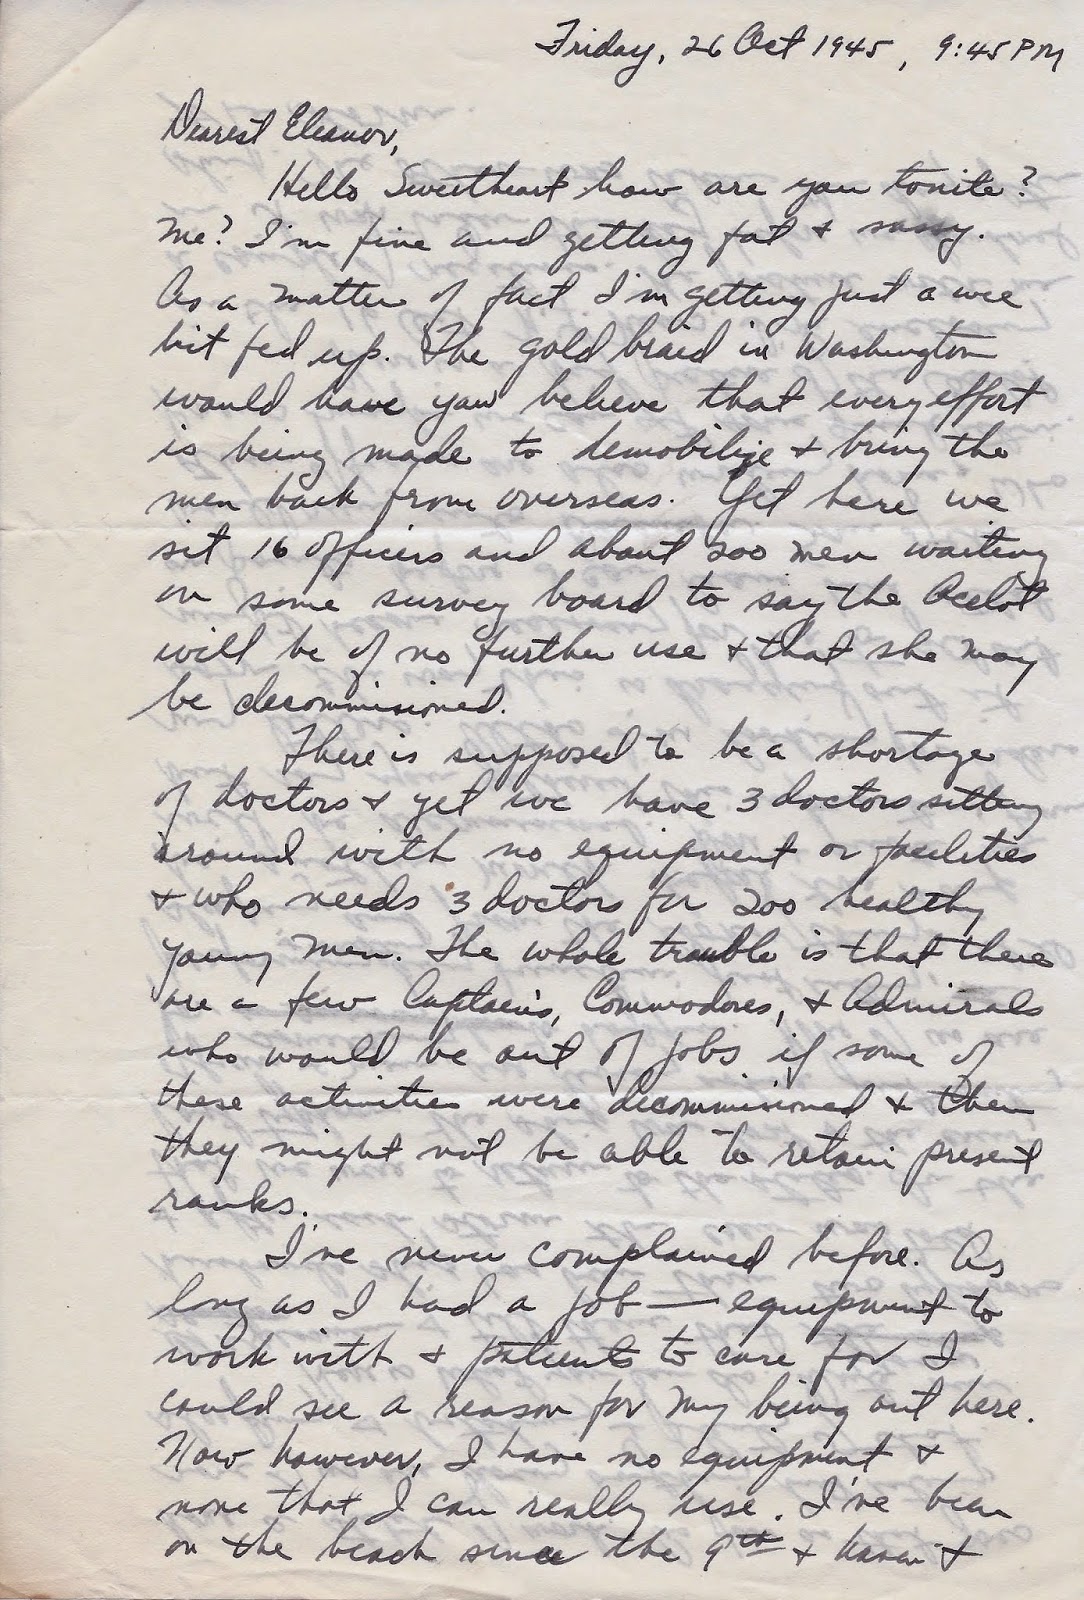 Friday, 26 Oct 1945, 9:45 PM
Dearest Eleanor,
Hello Sweetheart how are you tonite?
Me? I'm fine and getting fat & sassy.
As a matter of fact I'm getting just a wee
bit fed up. The gold braid in Washington
would have you believe that every effort
is being made to demobilize & bring the
men back from overseas. Yet here we
sit 16 officers and about 200 men waiting
on some survey board to say the Ocelot
will be of no further use & that she may
be decommisioned.
There is supposed to be a shortage
of doctors & yet we have 3 doctors sitting
around with no equipment or facilities
& who needs 3 doctors for 200 healthy
young men. The whole trouble is that there
are a few Captains, Commodores, & Admirals
who would be out of jobs if some of
these activities were decommisioned & then
they might not be able to retain present
ranks.
I've never complained before. As
long as I had a job — equipment to
work with & patients to care for I
could see a reason for my being out here.
Now however, I have no equipment &
none that I can really use. I've been
on the beach since the 9th & haven't